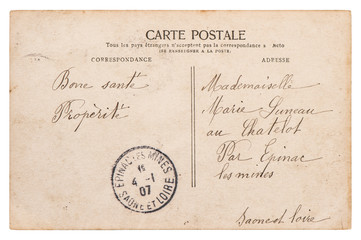 CARTE POSTALE
Tous les pays étrangers n'acceptent pas la correspondance au recto
(SE RENSEIGNER A LA POSTE)
CORRESPONDANCE
ADRESSE
Bone santé
Propèrité
Mademoiselle
Marie Juneau
au Chatelot
Par Epinac
les mines
Saone et loire
EPINAC LES MINES
4 - 1
07
SAONE ET LOIRE